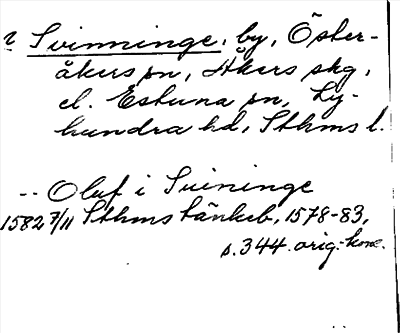 ? Svinninge, by, Öster-
åkers sn, Åkers skg,
el. Estuna sn, Ly-
hundra hd, Sthms l.
-- Oluf i Suininge
1582 7/11 Sthms tänkeb, 1578-83,
s. 344. orig.-konc.